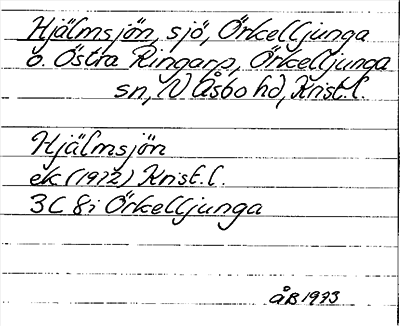 Hjälmsjön, sjö, Örkelljunga
o. Östra Ringarp, Örkelljunga
sn, N Åsbo hd, Krist. l.
Hjälmsjön
ek (1972) Krist. l.
3C 8i Örkelljunga
ÅB 1973